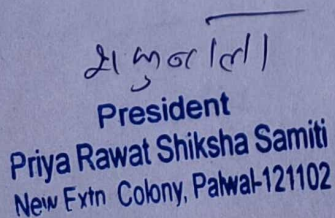 शकुन्तला
President
Priya Rawat Shiksha Samiti
New Extn Colony, Palwal-121102